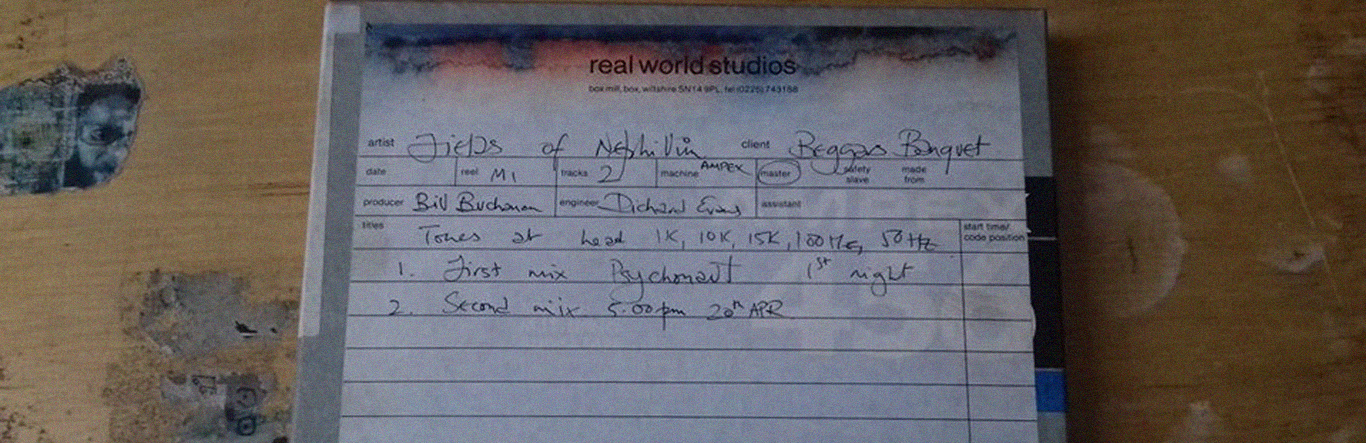 real world studios
box mill, box, wiltshire SN14 9PL, tel (0225) 743188
artist Fields of Nephilim client Beggars Banquet
date reel M1 tracks 2 machine AMPEX master safety slave made from
producer Bill Buchanan engineer Richard Evans assistant
titles start time/ code position
Tones at head 1K, 10K, 15K, 100Hz, 50Hz
1. First mix Psychonaut 1st night
2. Second mix 5.00pm 20th APR